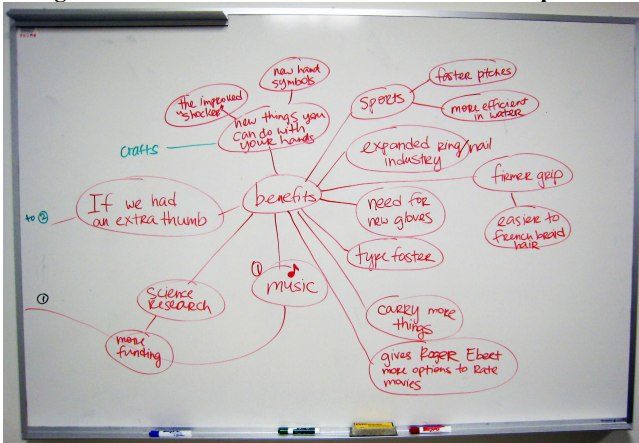 new hand
symbols
the improved
"shocker"
new things you
can do with
your hands
crafts
sports
faster pitches
more efficient
in water
expanded ring/nail
industry
firmer grip
easier to
french braid
hair
If we had
an extra thumb
to ②
benefits
need for
new gloves
type faster
①
music
science
research
①
more
funding
carry more
things
gives Roger Ebert
more options to rate
movies